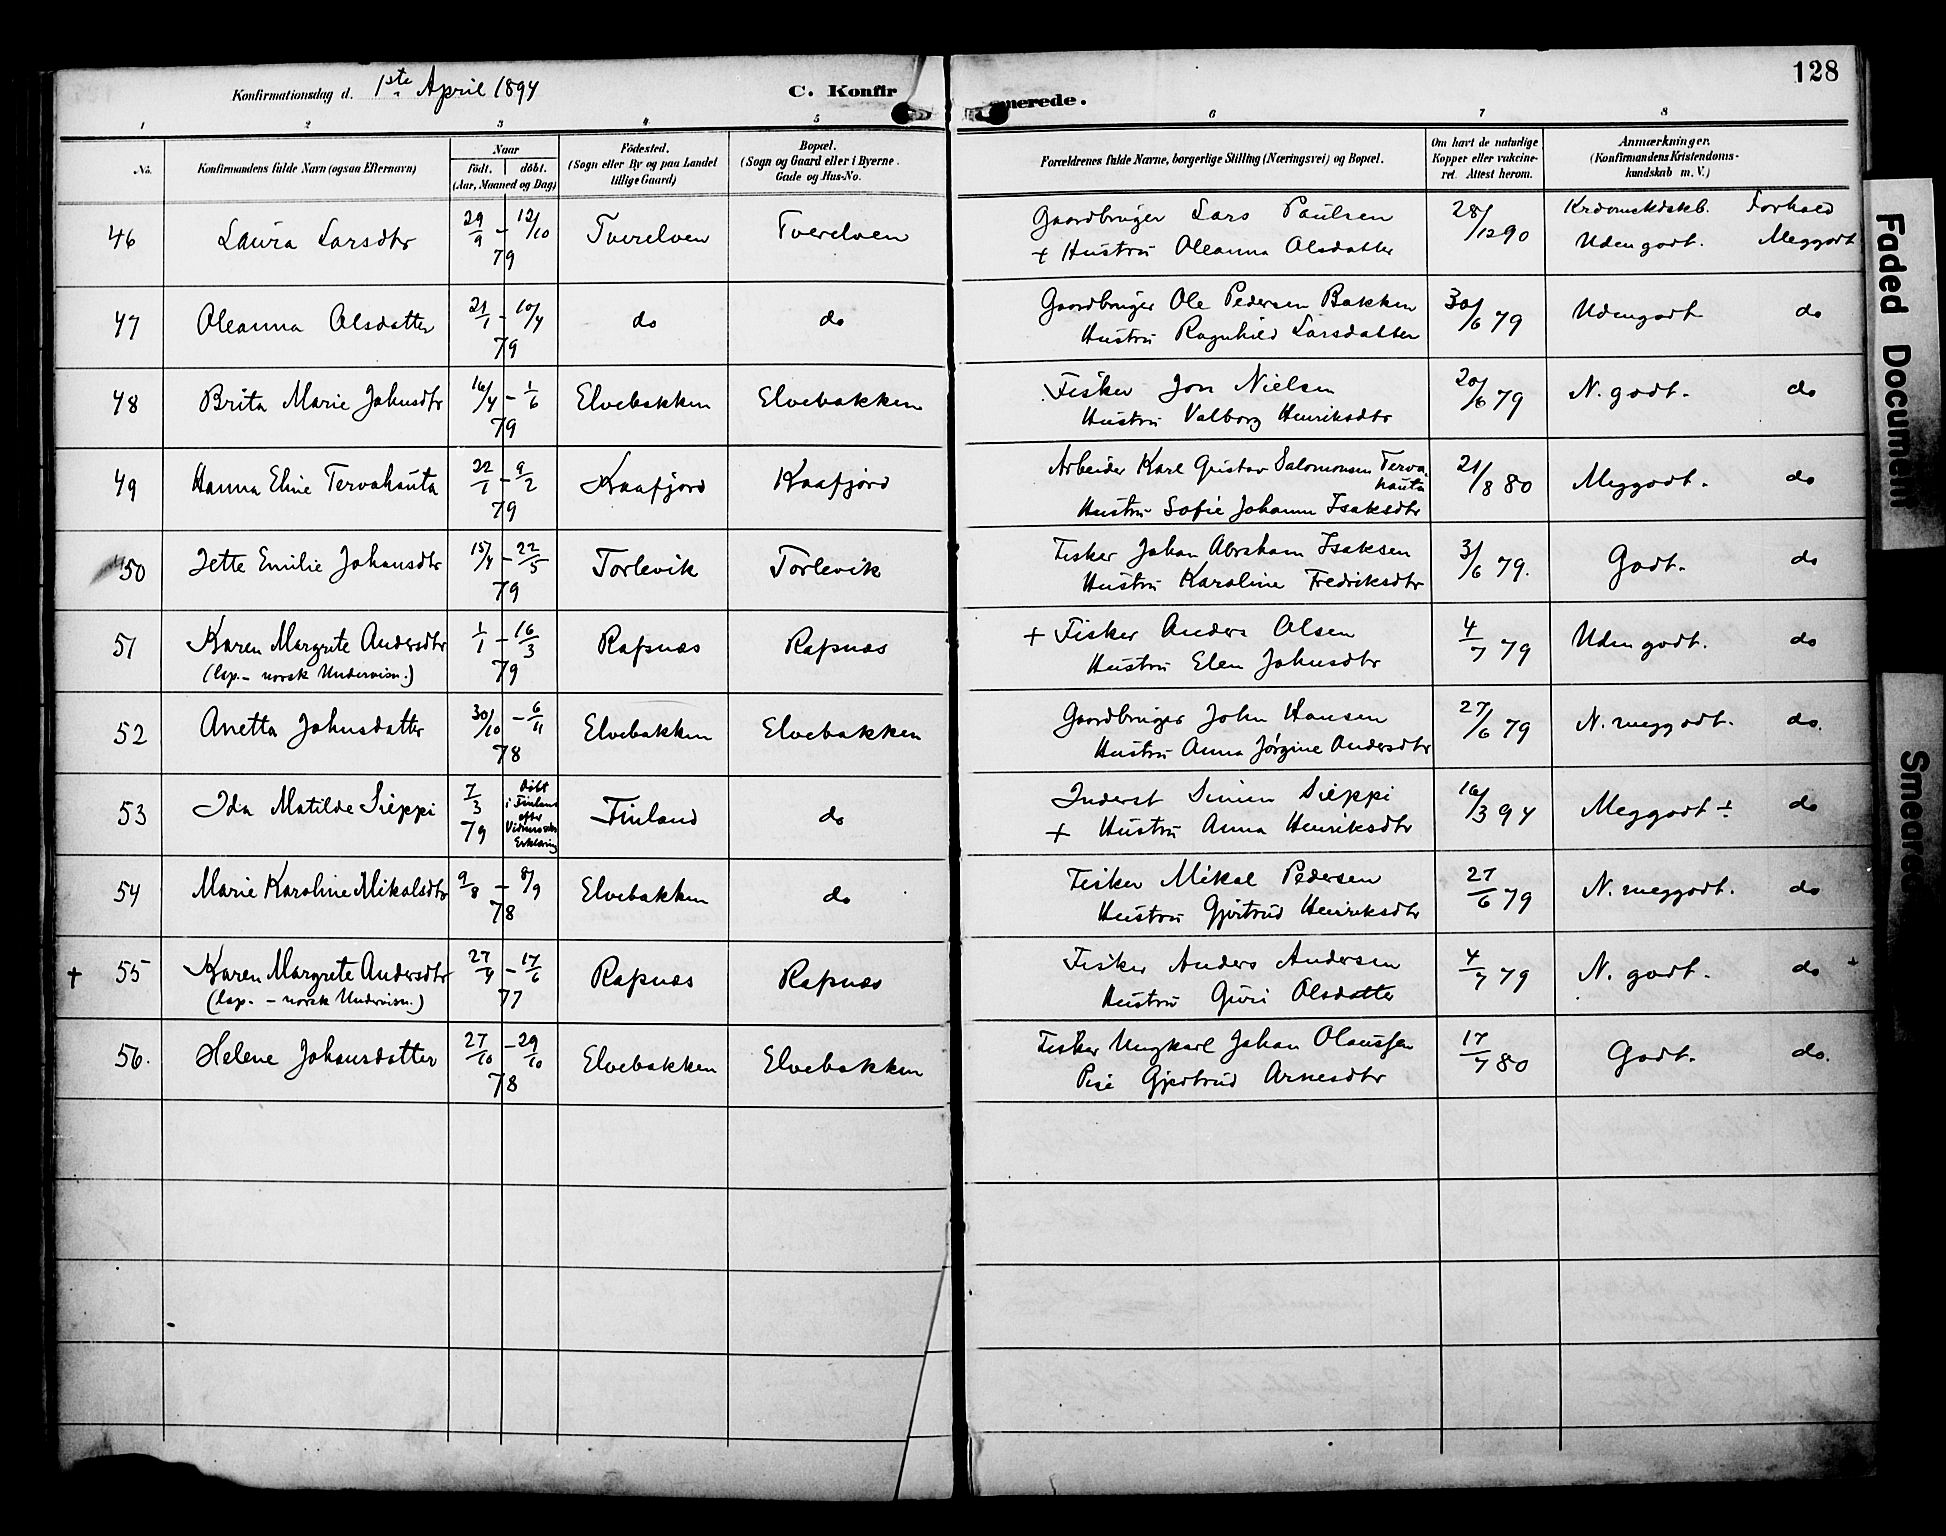 128
Konfirmationsdag d. 1ste April 1894 C. Konfirmerede.
1 2 3 4 5 6 7 8
No. Konfirmandens fulde Navn (ogsaa Efternavn) Naar født. døbt. (Aar, Maaned og Dag) Födested. (Sogn eller By og paa Landet tillige Gaard) Bopæl. (Sogn og Gaard eller i Byerne Gade og Hus-No. Forældrenes fulde Navne, borgerlige Stilling (Næringsvei) og Bopæl. Om havt de naturlige Kopper eller vaccineret. Attest herom. Anmærkninger. (Konfirmandens Kristendomskundskab m. V.)
Krdomskdskb. Forhold
46 Laura Larsdtr 29/9 - 12/10 79 Tverelven Tverelven Gaardbruger Lars Paulsen 28/12 90 Uden godt. Meggodt
+ Hustru Oleanna Olsdatter
47 Oleanna Olsdatter 21/1 - 10/4 79 do do Gaardbruger Ole Pedersen Bakken 30/6 79 Udengodt do
Hustru Ragnhild Larsdatter
48 Brita Marie Johnsdtr 16/4 - 1/6 79 Elvebakken Elvebakken Fisker Jon Nielsen 20/6 79 N. godt. do
Hustru Valborg Henriksdtr
49 Hanna Eline Tervahauta 22/1 - 9/2 79 Kaafjord Kaafjord Arbeider Karl Gustav Salomonsen Tervahauta 21/8 80 Meggodt. do
Hustru Sofie Johanne Isaksdtr
50 Jette Emilie Johansdtr 15/4 - 22/5 79 Torlevik Torlevik Fisker Johan Abraham Isaksen 3/6 79. Godt. do
Hustru Karoline Fredriksdtr
51 Karen Margrete Andersdtr 1/1 - 16/3 79 Rafsnæs Rafsnæs + Fisker Anders Olsen 4/7 79 Uden godt. do
(lap. - norsk Undervisn.) Hustru Elen Johnsdtr
52 Anetta Johnsdatter 30/10 - 6/11 78 Elvebakken Elvebakken Gaardbruger John Hansen 27/6 79 N. meggodt. do.
Hustru Anna Jørgine Andersdtr
53 Ida Matilde Sieppi 7/3 79 Døbt i Finland efter Erklæring Finland do Inderst Simen Sieppi 16/3 94 Meggodt ÷ do
+ Hustru Anna Henriksdtr
54 Marie Karoline Mikalsdtr 9/8 - 8/9 78 Elvebakken do Fisker Mikal Pedersen 27/6 79 N. meggodt. do
Hustru Gjertrud Henriksdtr
+ 55 Karen Margrete Andersdtr 27/4 - 17/6 77 Rafsnæs Rafsnæs Fisker Anders Andersen 4/7 79 N. godt. do +
(lap. - norsk Undervisn.) Hustru Guri Olsdatter
56. Helene Johansdatter 27/10 - 29/10 78 Elvebakken Elvebakken Fisker Ungkarl Johan Olaussen 17/7 80 Godt. do.
Pige Gjertrud Arnesdtr
Faded Document
Smeared